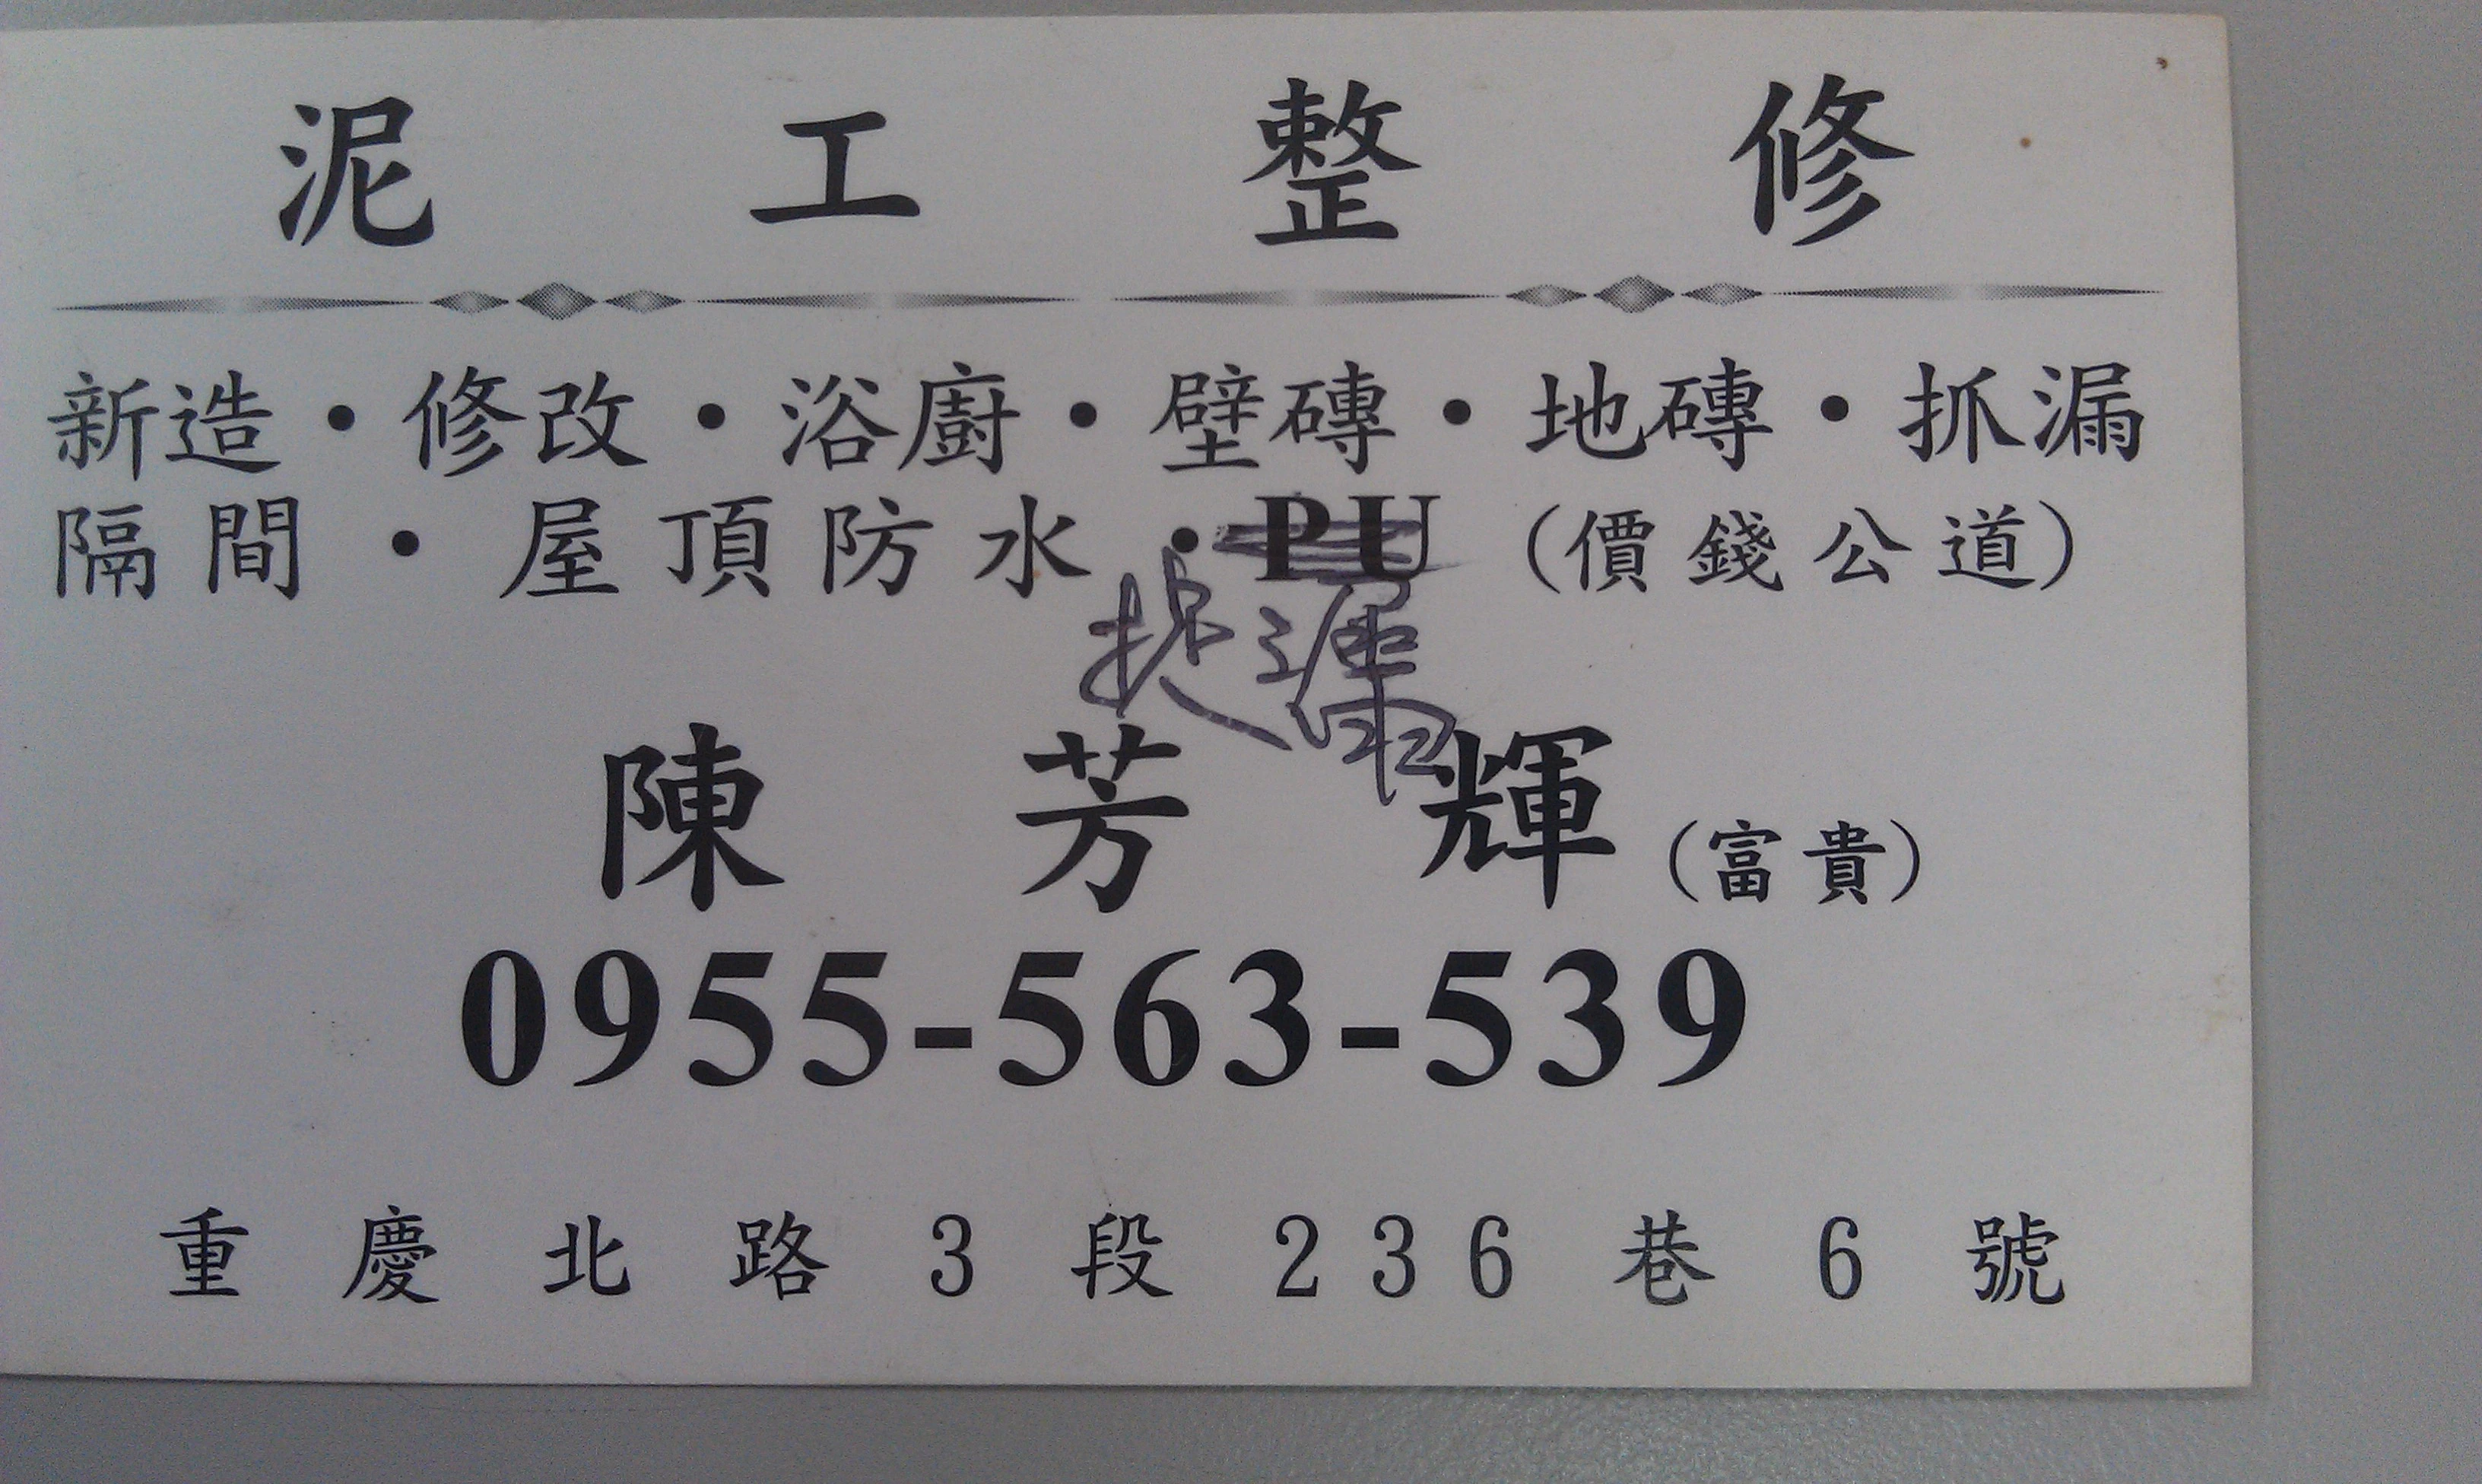 泥工整修
新造・修改・浴廚・壁磚・地磚・抓漏
隔間・屋頂防水・PU（價錢公道）
捷運
陳芳輝（富貴）
0955-563-539
重慶北路3段236巷6號